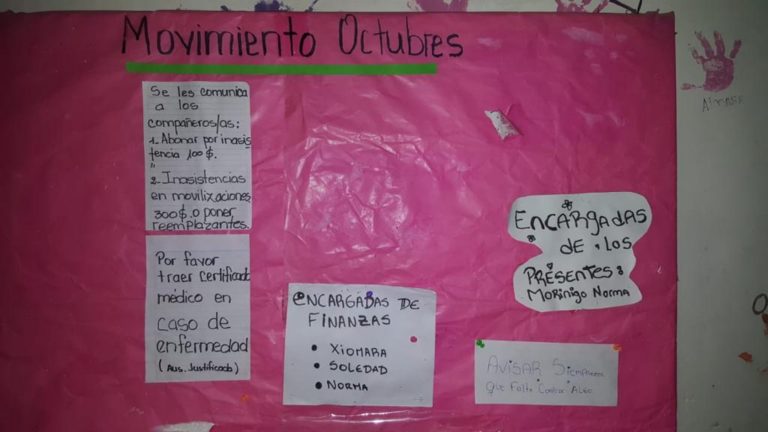 Movimiento Octubres
Se les comunica
a los
compañeros/as:
1. Abonar por inasis
tencia 100$.
"
2. Inasistencias
en movilizaciones
300$. o poner
reemplazantes.
Por favor
traer certificado
médico en
caso de
enfermedad
(Aus. Justificado)
ENCARGADAS DE
FINANZAS
• XIOMARA
• SOLEDAD
• NORMA
ENCARGADAS
DE LOS
PRESENTES:
MORINIGO NORMA
AVISAR Siempre
Que Falte